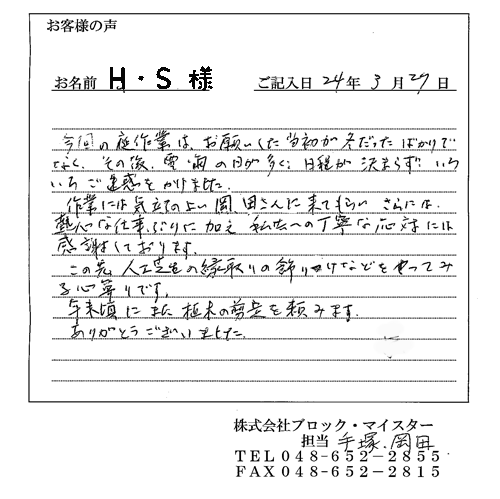 お客様の声
お名前 H・S 様 ご記入日 24年 3月 29日
今回の庭作業は、お願いした当初が冬だったばかりで
なく、その後、雪・雨の日が多く、日程が決まらず いろ
いろご迷惑をかけました。
作業には気立ての よい 岡田さんに来てもらい さらには、
熱心な仕事ぶりに加え 私共への丁寧な応対には
感謝しております。
この先 人工芝生の縁取りの飾り付けなどをやってみ
る心算りです。
年末頃に また 植木の剪定を頼みます。
ありがとうございました。
株式会社ブロック・マイスター
担当 手塚、岡田
TEL048-652-2855
FAX048-652-2815